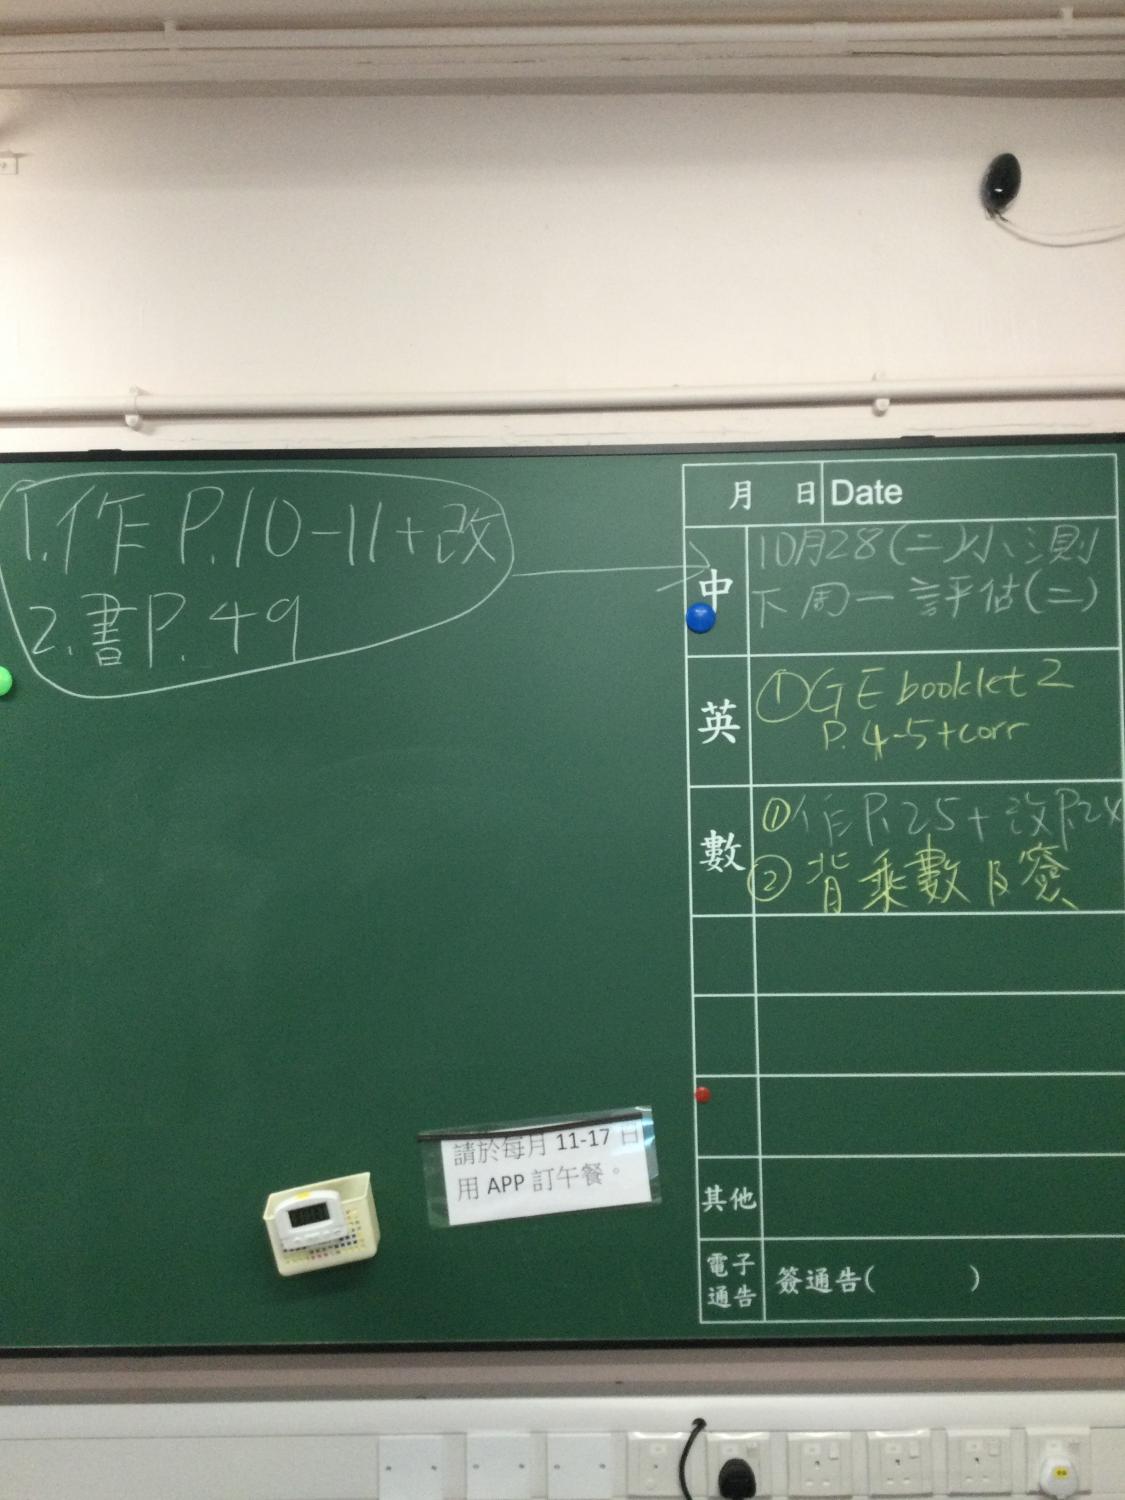 1.作 P.10-11+改
2.書P.49
月 日 Date
中
10月28(二)小測
下周一評估(二)
英
①GE booklet 2
P.4-5+corr
數
①作P.25+改P.24
②背乘數及簽
其他
電子
通告
簽通告( )
請於每月 11-17 日
用 APP 訂午餐。